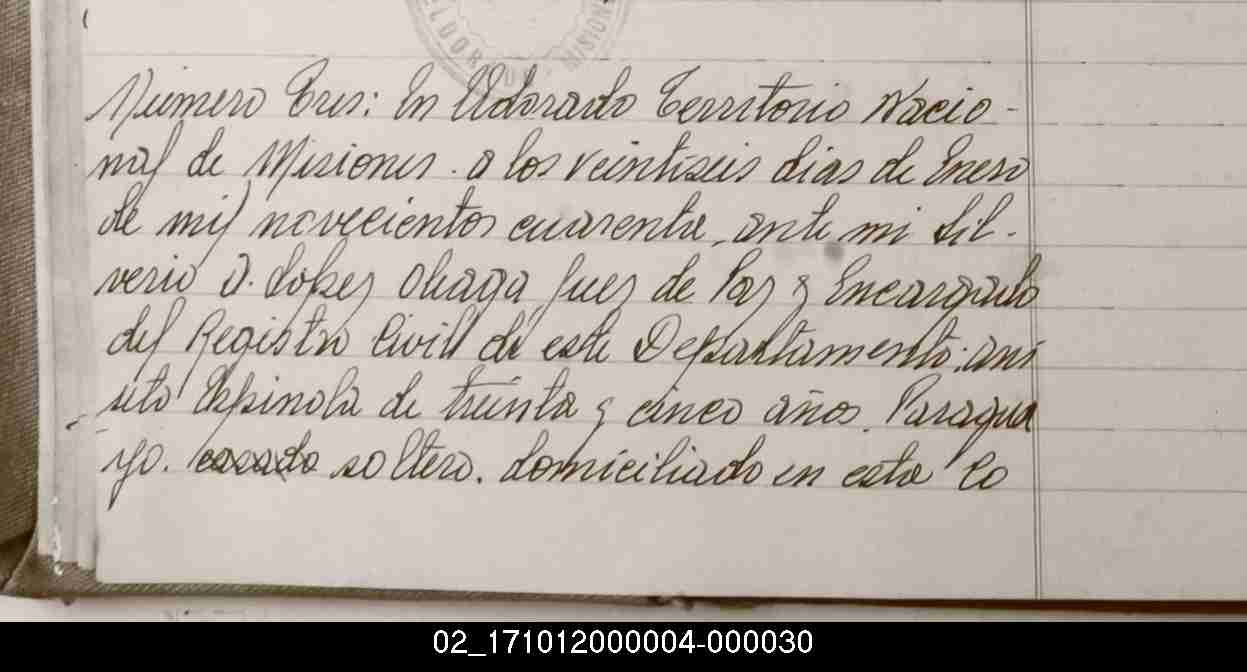 ELDORADO MISION
Número Tres: En Eldorado Territorio Nacio-
nal de Misiones. a los veintiseis dias de Enero
de mil novecientos cuarenta, ante mi Sil-
verio D. Lopez Chaga, Juez de Paz y Encargado
del Registro Civil de este Departamento; ani
seto Espinola de treinta y cinco años, Paragua
yo. casado soltero. domiciliado en esta Co
02_171012000004-000030